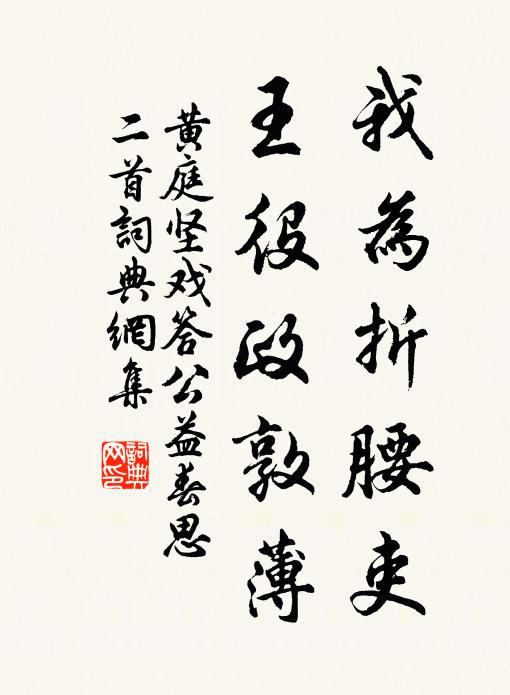 我為折腰吏
王役政敦薄
黄庭坚戏答公益春思
二首詞典網集
詞典
网印